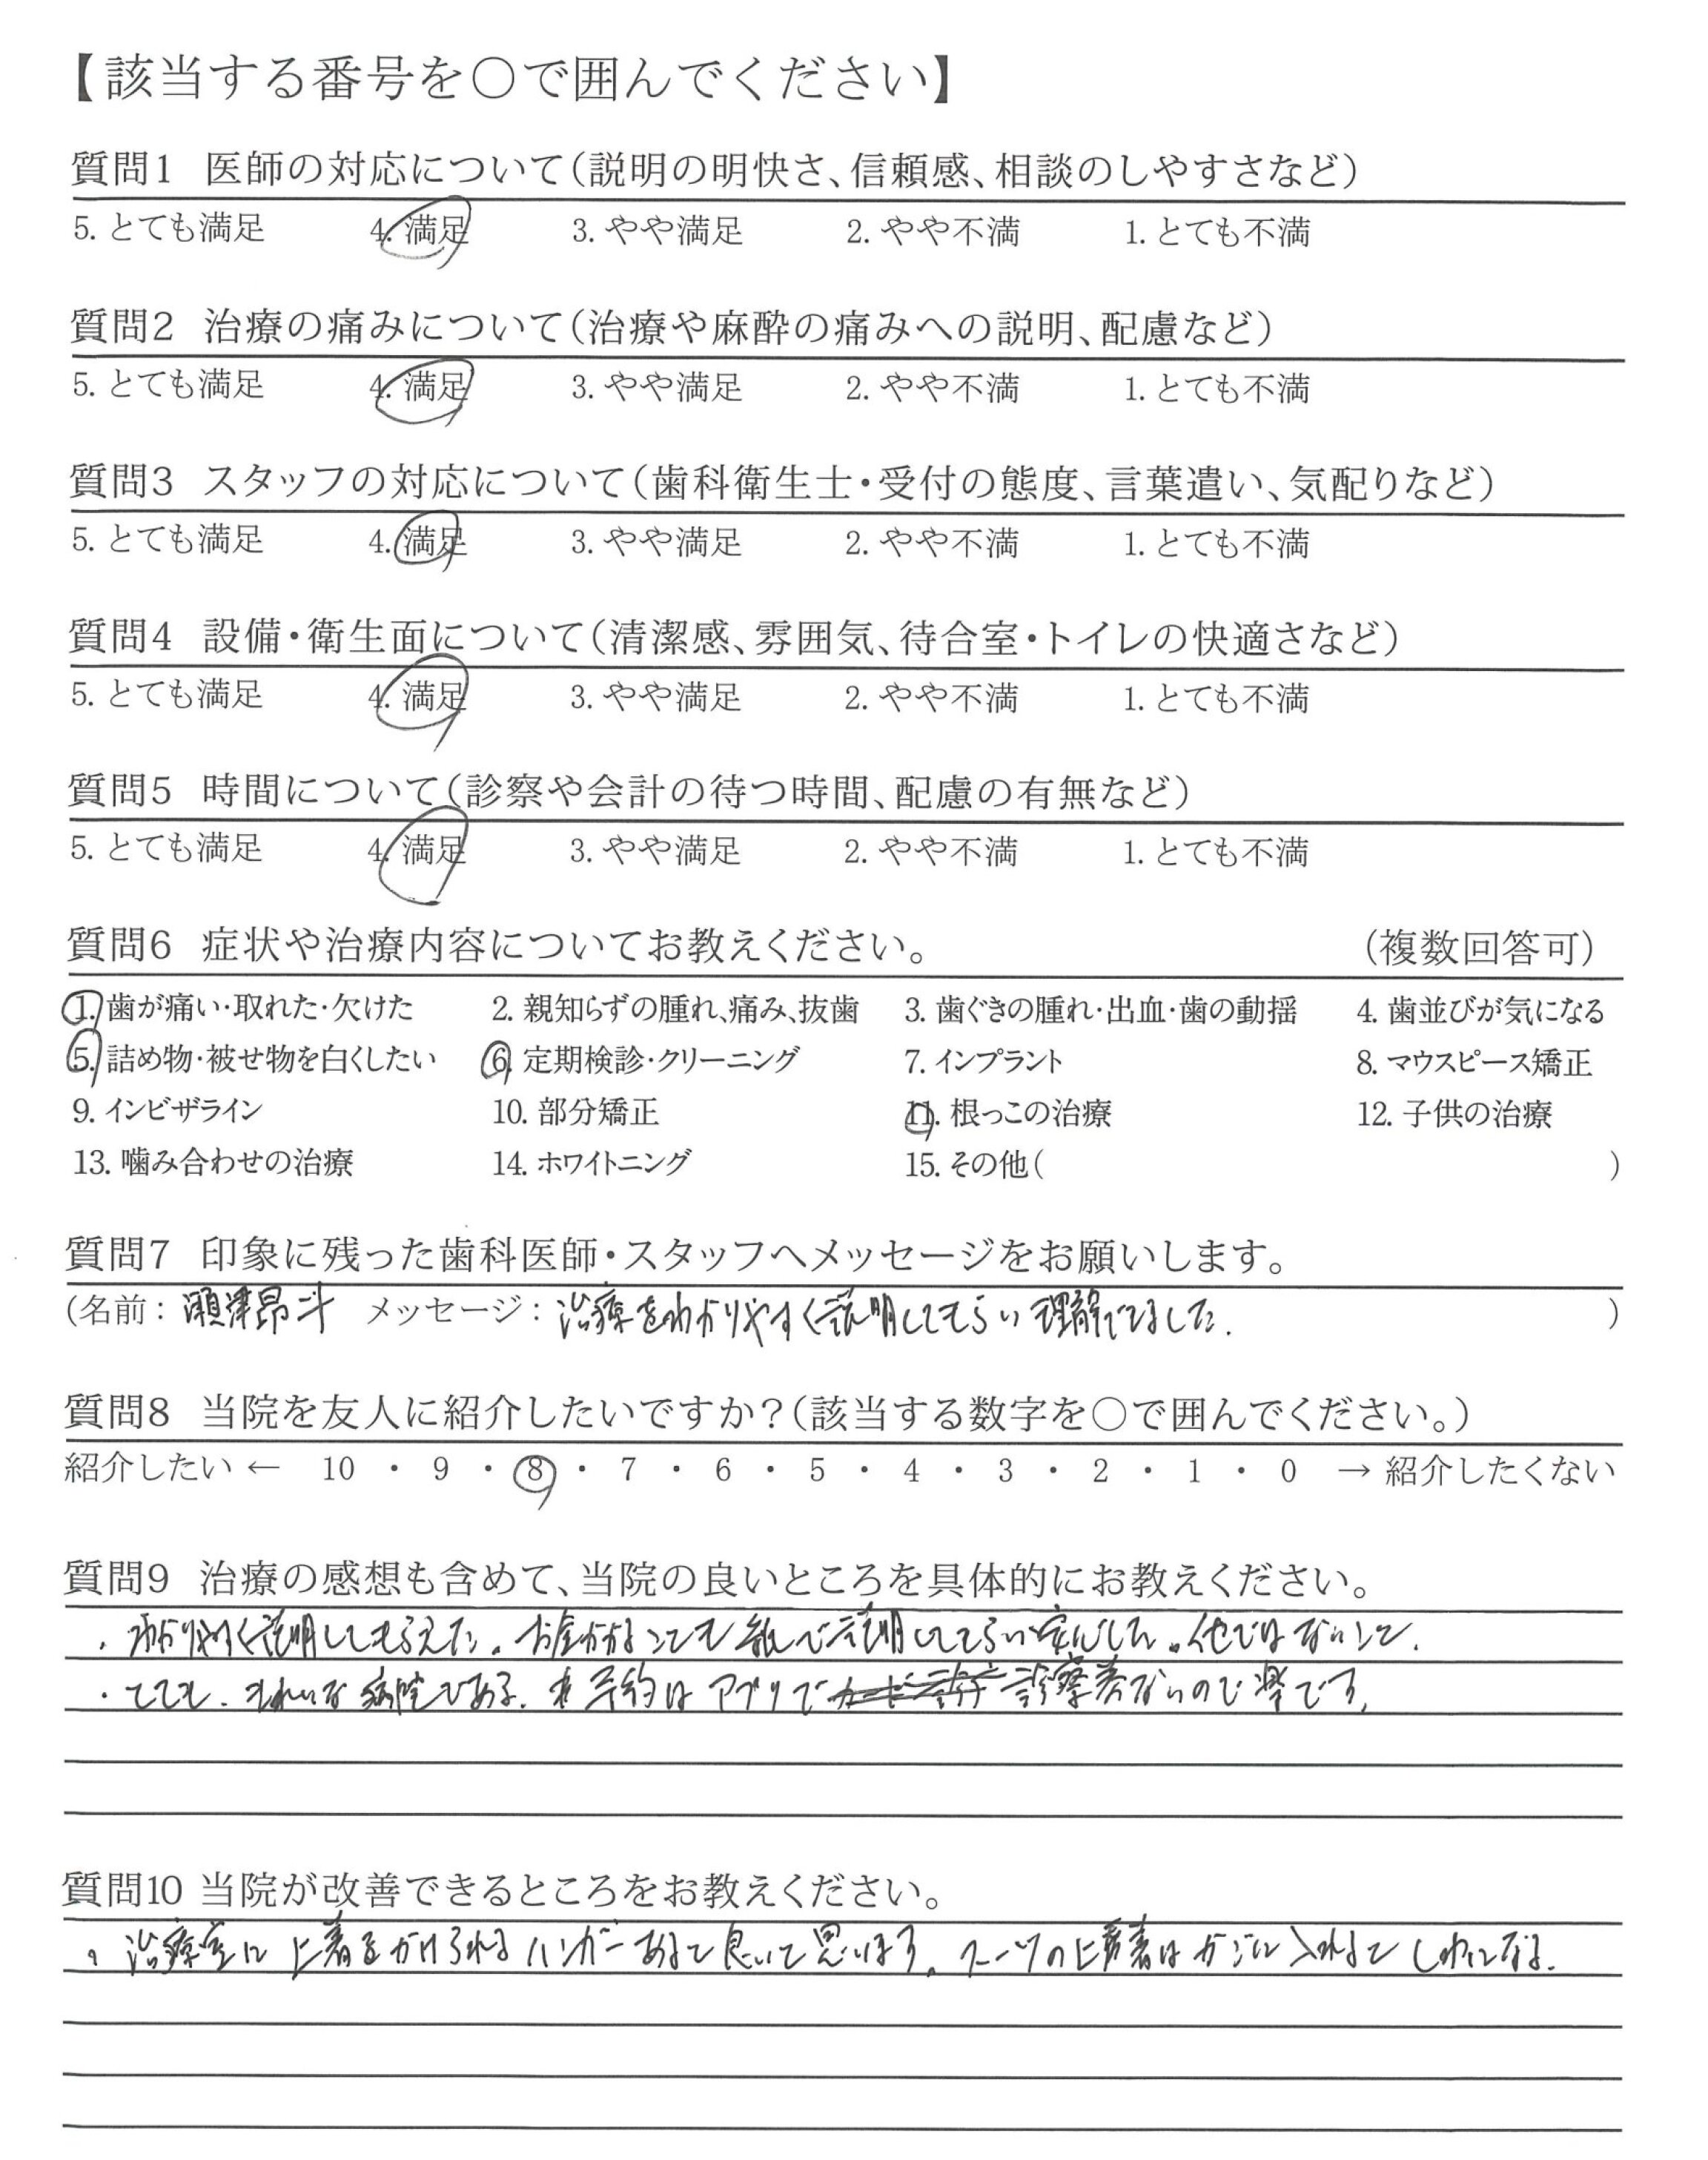 【該当する番号を○で囲んでください】
質問1 医師の対応について(説明の明快さ、信頼感、相談のしやすさなど)
5. とても満足 4. 満足 3. やや満足 2. やや不満 1. とても不満
質問2 治療の痛みについて(治療や麻酔の痛みへの説明、配慮など)
5. とても満足 4. 満足 3. やや満足 2. やや不満 1. とても不満
質問3 スタッフの対応について(歯科衛生士・受付の態度、言葉遣い、気配りなど)
5. とても満足 4. 満足 3. やや満足 2. やや不満 1. とても不満
質問4 設備・衛生面について(清潔感、雰囲気、待合室・トイレの快適さなど)
5. とても満足 4. 満足 3. やや満足 2. やや不満 1. とても不満
質問5 時間について(診察や会計の待つ時間、配慮の有無など)
5. とても満足 4. 満足 3. やや満足 2. やや不満 1. とても不満
質問6 症状や治療内容についてお教えください。 (複数回答可)
1. 歯が痛い・取れた・欠けた 2. 親知らずの腫れ、痛み、抜歯 3. 歯ぐきの腫れ・出血・歯の動揺 4. 歯並びが気になる
5. 詰め物・被せ物を白くしたい 6. 定期検診・クリーニング 7. インプラント 8. マウスピース矯正
9. インビザライン 10. 部分矯正 11. 根っこの治療 12. 子供の治療
13. 噛み合わせの治療 14. ホワイトニング 15. その他( )
質問7 印象に残った歯科医師・スタッフへメッセージをお願いします。
(名前: 瀬津昴斗 メッセージ: 治療をわかりやすく説明してもらい理解できました. )
質問8 当院を友人に紹介したいですか?(該当する数字を○で囲んでください。)
紹介したい ← 10 ・ 9 ・ 8 ・ 7 ・ 6 ・ 5 ・ 4 ・ 3 ・ 2 ・ 1 ・ 0 → 紹介したくない
質問9 治療の感想も含めて、当院の良いところを具体的にお教えください。
・わかりやすく説明してもらえた。お金がかかることも 説明してもらい安心した。他ではないこと.
・とても、きれいな病院である。予約はアプリで 診察券ないので楽です。
質問10 当院が改善できるところをお教えください。
・治療室に上着をかけられるハンガーあると良いと思います。スーツの上着はかごに入れるとしわになる.